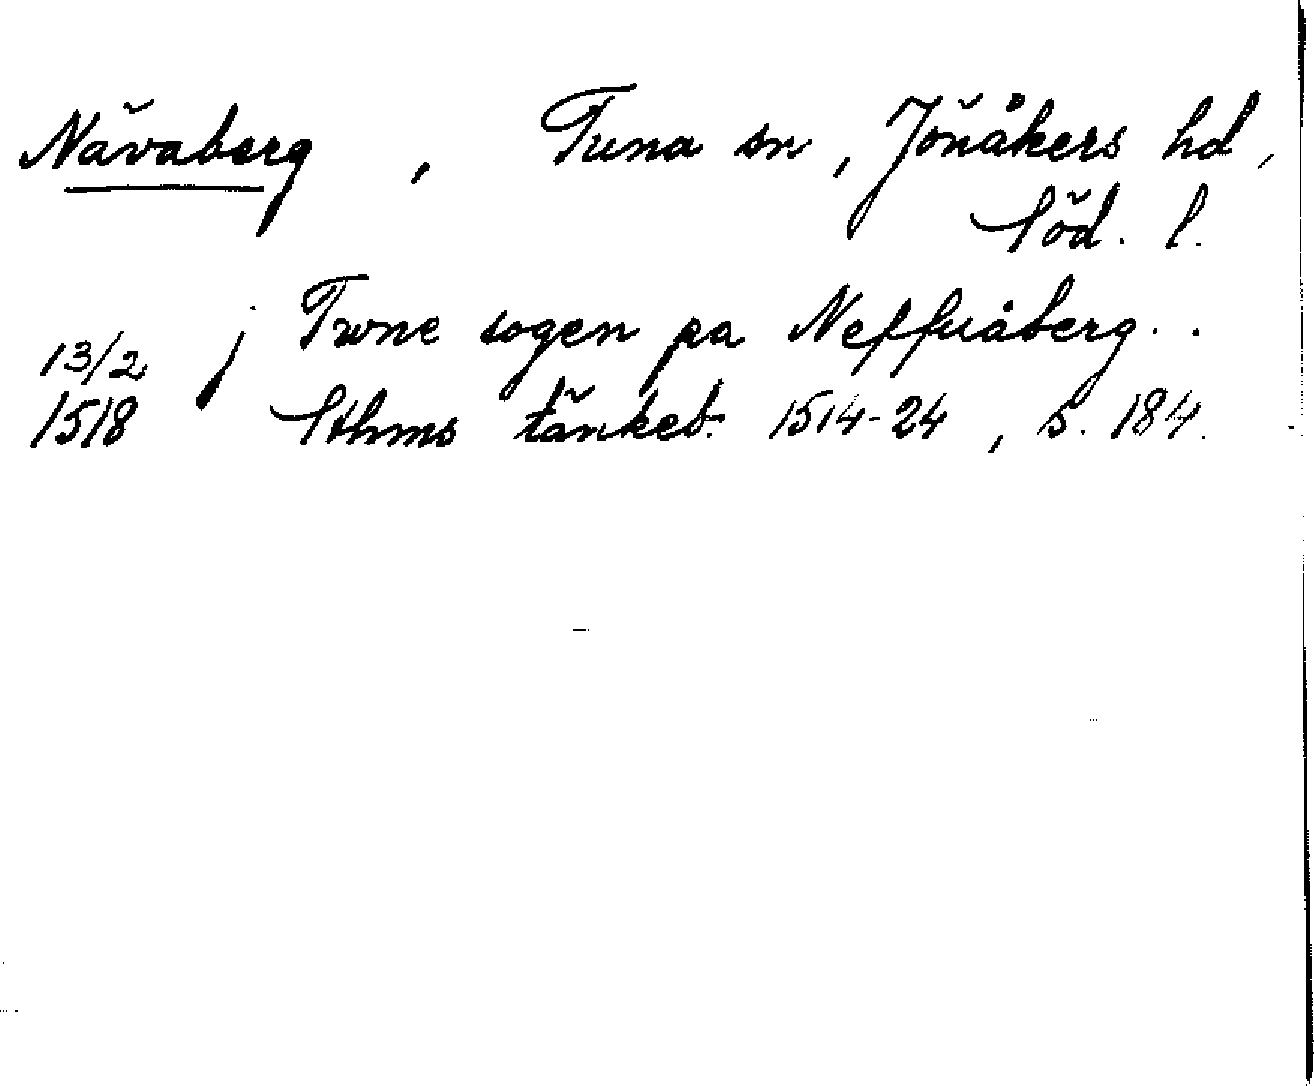 Nävaberg, Tuna sn, Jönåkers hd,
Söd. l.
13/2 j Twne sogen pa Neffuåberg..
1518 Sthms tänkeb. 1514-24, s. 184.